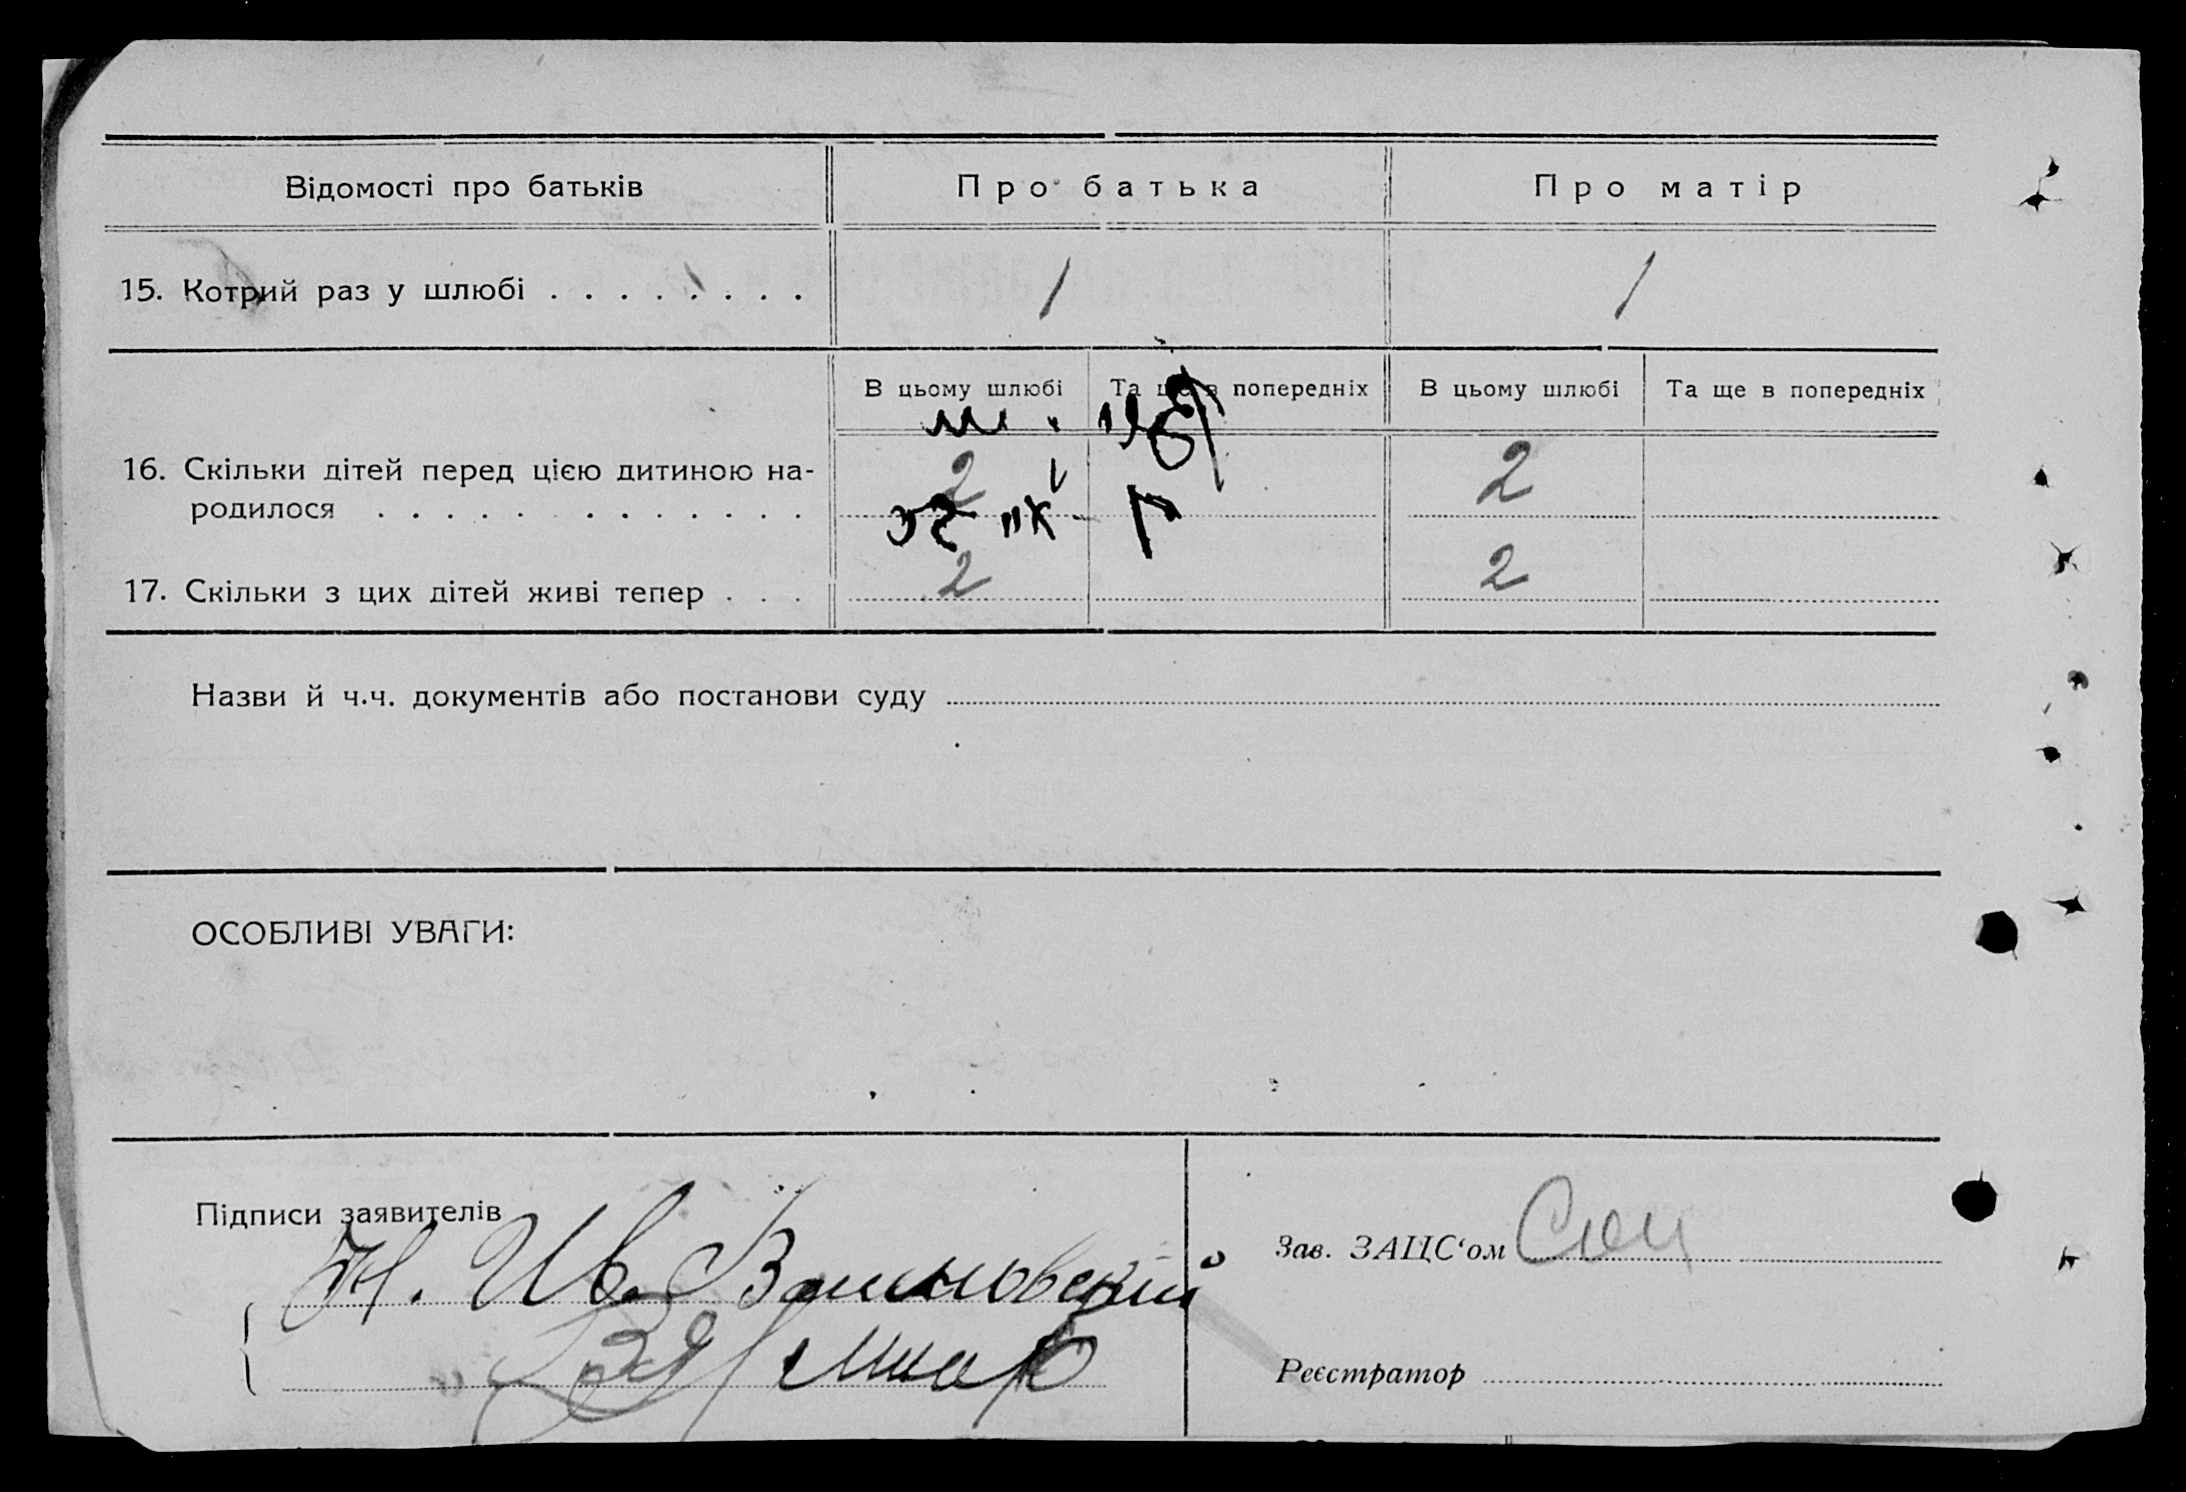 Відомості про батьків
Про батька
Про матір
15. Котрий раз у шлюбі . . . . . . . .
1
1
В цьому шлюбі
Та ще в попередніх
В цьому шлюбі
Та ще в попередніх
16. Скільки дітей перед цією дитиною на-
родилося . . . . . . . . . . . . .
2
2
17. Скільки з цих дітей живі тепер . . .
2
2
Назви й ч.ч. документів або постанови суду
ОСОБЛИВІ УВАГИ:
Підписи заявителів
Ив.
Зав. ЗАЦС‘ом
Реєстратор